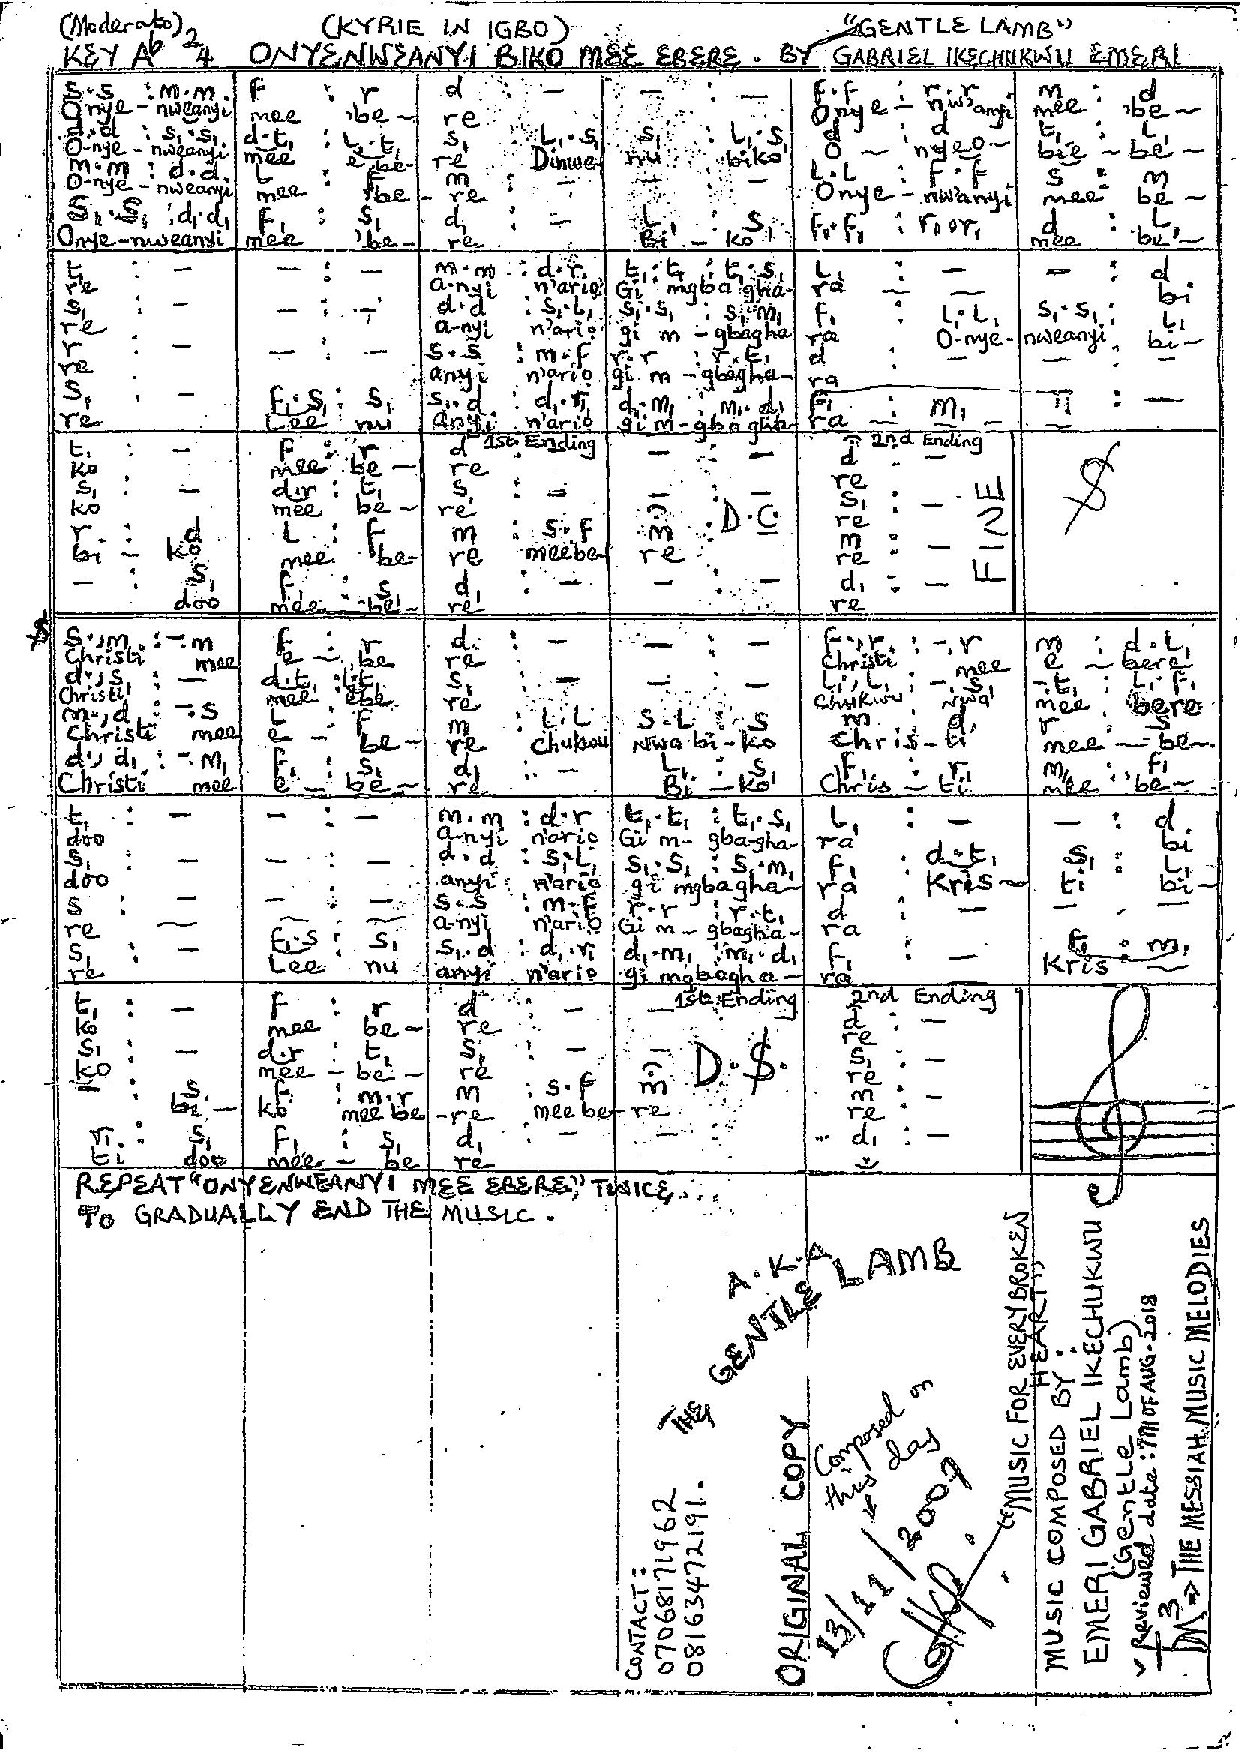 (Moderato) (KYRIE IN IGBO) "GENTLE LAMB"
KEY Ab 2/4 ONYENWEANYI BIKO MEE EBERE. BY GABRIEL IKECHUKWU EMERI
S.S : m.m. F : r d : - - : - F.F : r.r m : d
Onye-nweanyi mee be- re Onye-nw'anyi mee be-
d.d : s,.s, d.t, : l,.t, s, : L.S, S, : L,.S, d : d t, : L,
O-nye-nweanyi mee e be- re Dinwe nu biko O - nyeo- bie-be-
m.m : d.d L : F m : - - : - L.L : F.F S : m
O-nye-nweanyi mee be- re Onye-nwanyi mee be-
S,.S, : d,.d, F, : S, d, : - L, : S, F,.F, : r,.r, d : L,
Onye-nweanyi mee be- re Bi-ko mee be-
t, : - - : - m.m : d.r t,.t, : t,.s, L, : - - : d
re a-nyi n'ario Gi mgbagha- ra bi
S, : - - : - d.d : S,.L, S,.S, : S,.m, F, : L,.L, S,.S, : L,
re a-nyi n'ario gi m-gbagha ra O-nye- nweanyi bi-
r : - - : - S.S : m.F r.r : r.t, d : - - : -
re anyi n'ario gi m-gbagha- ra
S, : - F,.S, : S, S,.d : d,.r, d,.m, : m,.d, F, : m,
re Lee nu anyi n'ario gi m-gbagha- ra
1st Ending 2nd Ending
t, : - F : r d : - - : - d : -
ko mee be- re re
S, : - d.r : t, S, : - - : - S, : -
ko mee be- re D.C. re FINE
r : d L : F m : S.F m : m : -
bi-ko mee be- re meebe- re re
- : S, F, : S, d, : - - : - d, : -
doo mee-be- re re
S.,m : -.m F : r d : - - : - F.,r : -.r m : d.L,
Christi mee e - be re Christi mee e - bere
d.,s, : - d.t, : l,.t, S, : - - : - L,.,L, : -.S, t, : L,.F,
Christi mee ebe re Chukwu Nwa mee bere
m.,d : -.S L : F m : L.L S.L : S m : d r : S,
Christi mee e - be- re Chukwu Nwa-bi-ko Chris-ti mee - be-
d.,d, : -.m, F, : S, d, : - L, : S, F, : r, m, : F,
Christi mee e - be- re Bi-ko Chris-ti mee be-
t, : - - : - m.m : d.r t,.t, : t,.s, L, : - - : d
doo a-nyi n'ario Gi m-gbagha- ra bi
S, : - - : - d.d : S,.L, S,.S, : S,.m, F, : d.t, S, : L,
doo anyi n'ario gi mgbagha- ra Kris- ti bi-
S : - m.F r.r : r.t, d : - - : -
re a-nyi n'ario Gi m-gbagha- ra
S, : - F,.S : S, S,.d : d,.r, d,.m, : m,.d, F, : - F, : m,
re Lee nu anyi n'ario gi mgbagha- ra Kris
1st Ending 2nd Ending
t, : - F : r d : - - : - d : -
ko mee be- re re
S, : - d.r : t, S, : - S, : -
ko mee-be- re D.S. re
- : S, F : m.r m : S.F m : m : -
bi- ko meebe -re meebe-re re
r, : S, F, : S, d, : - - : - d, : -
ti doo mee-be re
REPEAT "ONYENWEANYI MEE EBERE," TWICE...
TO GRADUALLY END THE MUSIC.
A.K.A
THE GENTLE LAMB
CONTACT:
07068171962
08163472191.
ORIGINAL COPY
Composed on
this day
13/11/2007
"MUSIC FOR EVERY BROKEN
HEART"
MUSIC COMPOSED BY:
EMERI GABRIEL IKECHUKWU
(Gentle Lamb)
Reviewed date: 7TH OF AUG. 2018
TM3 => THE MESSIAH MUSIC MELODIES